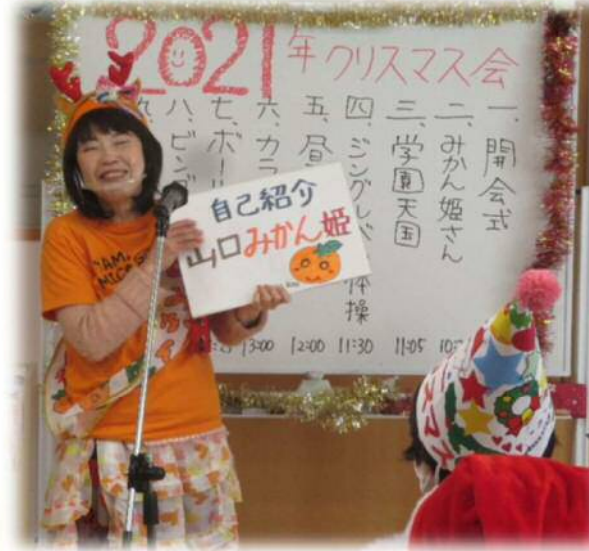 2021年クリスマス会
一、開会式
二、みかん姫さん
三、学園天国
四、ジングルベ 体操
五、昼
六、カラ
七、ボール
八、ビンゴ
九、
10:
11:05
11:30
12:00
13:00
自己紹介
山口みかん姫